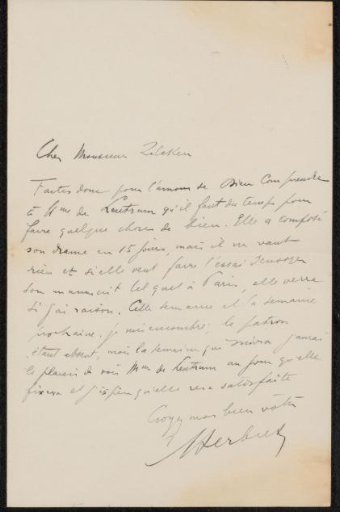 Cher Monsieur Zilcken
Faites donc pour l'amour de Dieu comprendre
à Mme de qu'il faut du temps pour
faire quelque chose de bien. Elle a composé
son drame en 15 jours, mais il ne vaut
rien et si elle veut faire l'essai d'envoyer
son manuscrit tel quel à Paris, elle verra
si j'ai raison. Cette semaine et la semaine
prochaine, je le patron
étant absent, mais la semaine qui suivra j'aurai
le plaisir de voir Mme de au jour qu'elle
fixera et j'espère qu'elle sera satisfaite
Croyez moi bien vôtre